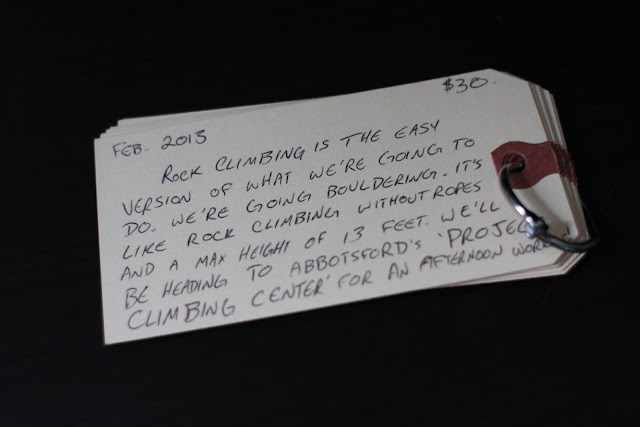 $30.
FEB. 2013
ROCK CLIMBING IS THE EASY
VERSION OF WHAT WE'RE GOING TO
DO. WE'RE GOING BOULDERING. IT'S
LIKE ROCK CLIMBING WITHOUT ROPES
AND A MAX HEIGHT OF 13 FEET. WE'LL
BE HEADING TO ABBOTSFORD'S 'PROJECT
CLIMBING CENTER' FOR AN AFTERNOON